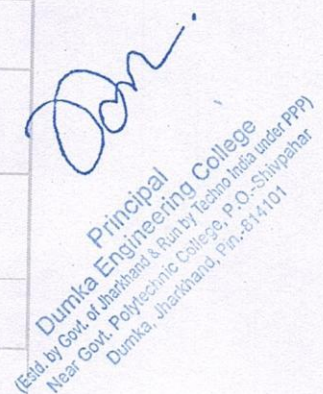 Principal
Dumka Engineering College
(Estd. by Govt. of Jharkhand & Run by Techno India under PPP)
Near Govt. Polytechnic College, P.O.-Shivpahar
Dumka, Jharkhand, Pin.-814101